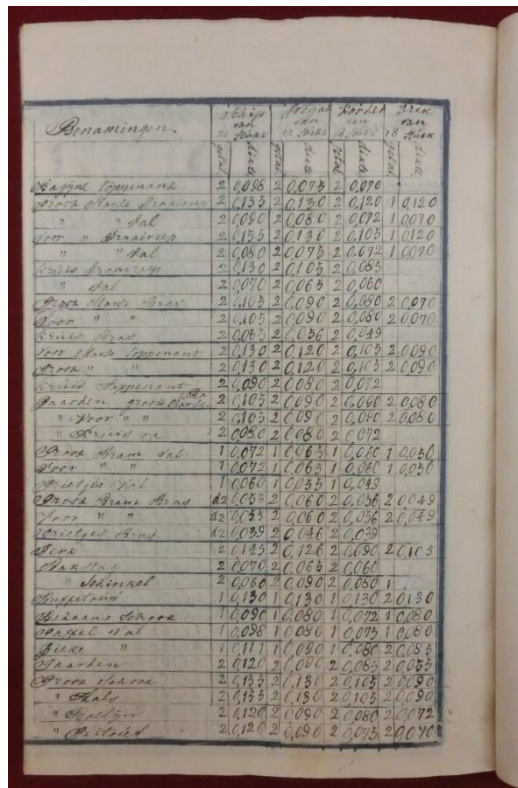 Benamingen. Schip van Stukx Fregat van Stukx Korvet van 18 Stukx Brik van 18 Stukx
getal dikte getal dikte getal dikte getal dikte
Toppenand 2 0,098 2 0,075 2 0,070
Groot Marse Draaireep 2 0,155 2 0,130 2 0,120 1 0,120
" " Val 2 0,090 2 0,080 2 0,072 1 0,070
Voor " Draaireep 2 0,155 2 0,130 2 0,105 1 0,120
" " Val 2 0,080 2 0,075 2 0,072 1 0,070
Kruis Draaireep 2 0,130 2 0,105 2 0,085
" Val 2 0,070 2 0,065 2 0,060
Groot Marse Bras 2 0,105 2 0,090 2 0,080 2 0,070
Voor " " 2 0,105 2 0,090 2 0,080 2 0,070
Kruis Bras 2 0,065 2 0,056 2 0,049
Voor Marse Toppenant 2 0,130 2 0,120 2 0,105 2 0,090
Groot " " 2 0,130 2 0,120 2 0,105 2 0,090
Kruis Toppenant 2 0,090 2 0,080 2 0,072
Paarden groot Marse Ra 2 0,105 2 0,090 2 0,080 2 0,080
" Voor " " 2 0,105 2 0,090 2 0,080 2 0,080
" Kruis ra 2 0,080 2 0,080 2 0,072
Groot Bram Val 1 0,072 1 0,065 1 0,060 1 0,050
Voor " " 1 0,072 1 0,065 1 0,060 1 0,050
Grietjes Val 1 0,060 1 0,055 1 0,049
Groot Bram Bras 2 0,055 2 0,060 2 0,056 2 0,049
Voor " " 2 0,055 2 0,060 2 0,056 2 0,049
Grietjes Bras 2 0,039 2 0,046 2 0,039
2 0,145 2 0,126 2 0,090 2 0,105
Bakstag 2 0,070 2 0,065 2 0,060
" Schinkel 2 0,060 2 0,090 2 0,080 1
1 0,130 1 0,130 1 0,130 2 0,130
Bezaans Schoot 1 0,090 1 0,080 1 0,072 1 0,080
Val 1 0,098 1 0,080 1 0,075 1 0,080
" 1 0,111 1 0,090 1 0,080 2 0,085
Paarden 2 0,120 2 0,090 2 0,085 2 0,055
Groot Schoot 2 0,155 2 0,130 2 0,105 2 0,090
" Hals 2 0,155 2 0,130 2 0,105 2 0,090
" Boelijn 2 0,120 2 0,090 2 0,080 2 0,072
" 2 0,120 2 0,090 2 0,075 2 0,070